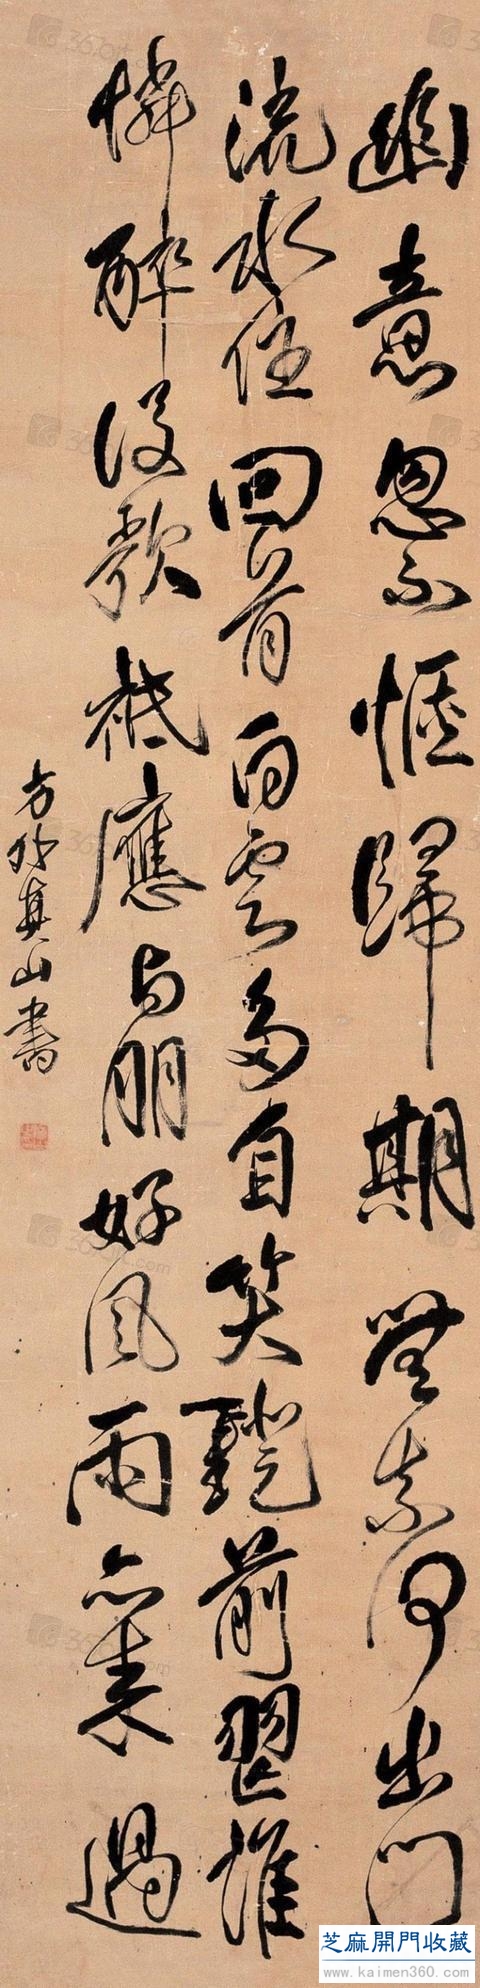 幽意忽不愜歸期無奈何出門
流水住回首白雲多自笑鐙前舞誰
憐醉後歌祗應与朋好風雨亦來過
方外真山書
芝麻開門收藏
www.kaimen360.com